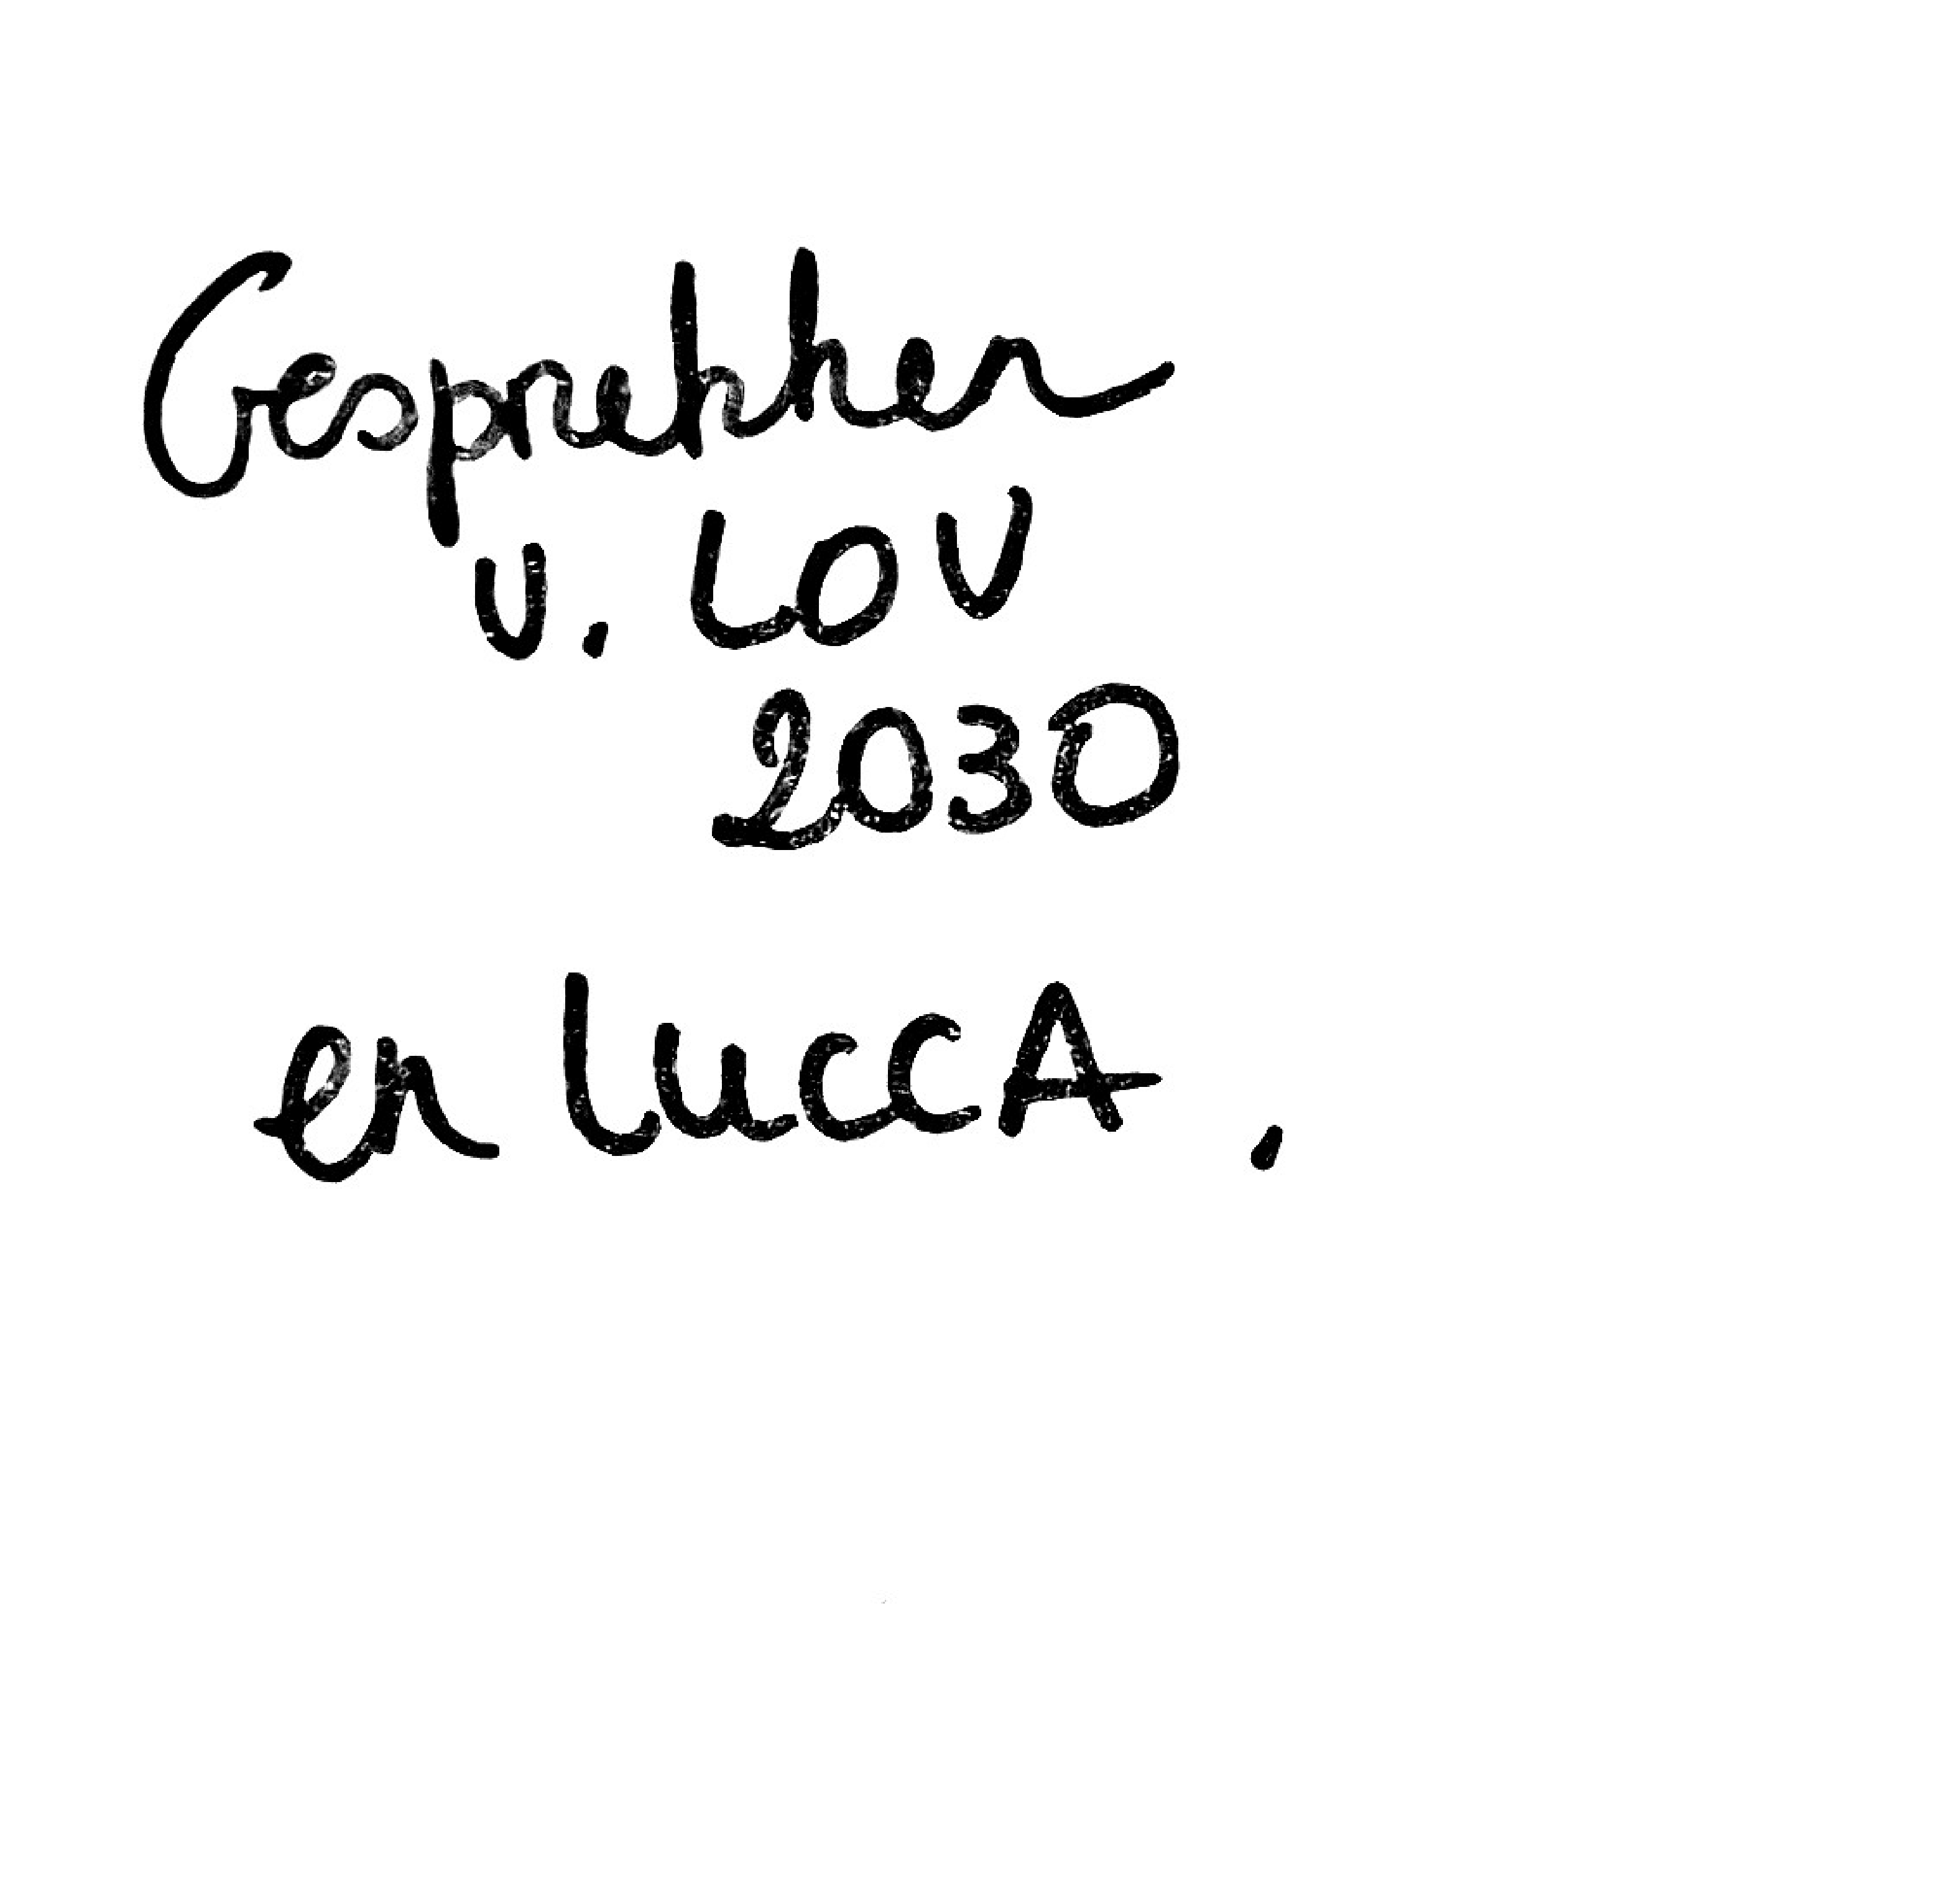 Gesprekken
v. LOV
2030
en LUCCA.